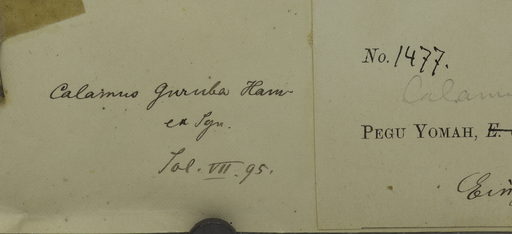 Calamus Guruba Ham-
ex
VII. 95.
No. 1477.
Calamu
PEGU YOMAH, E.